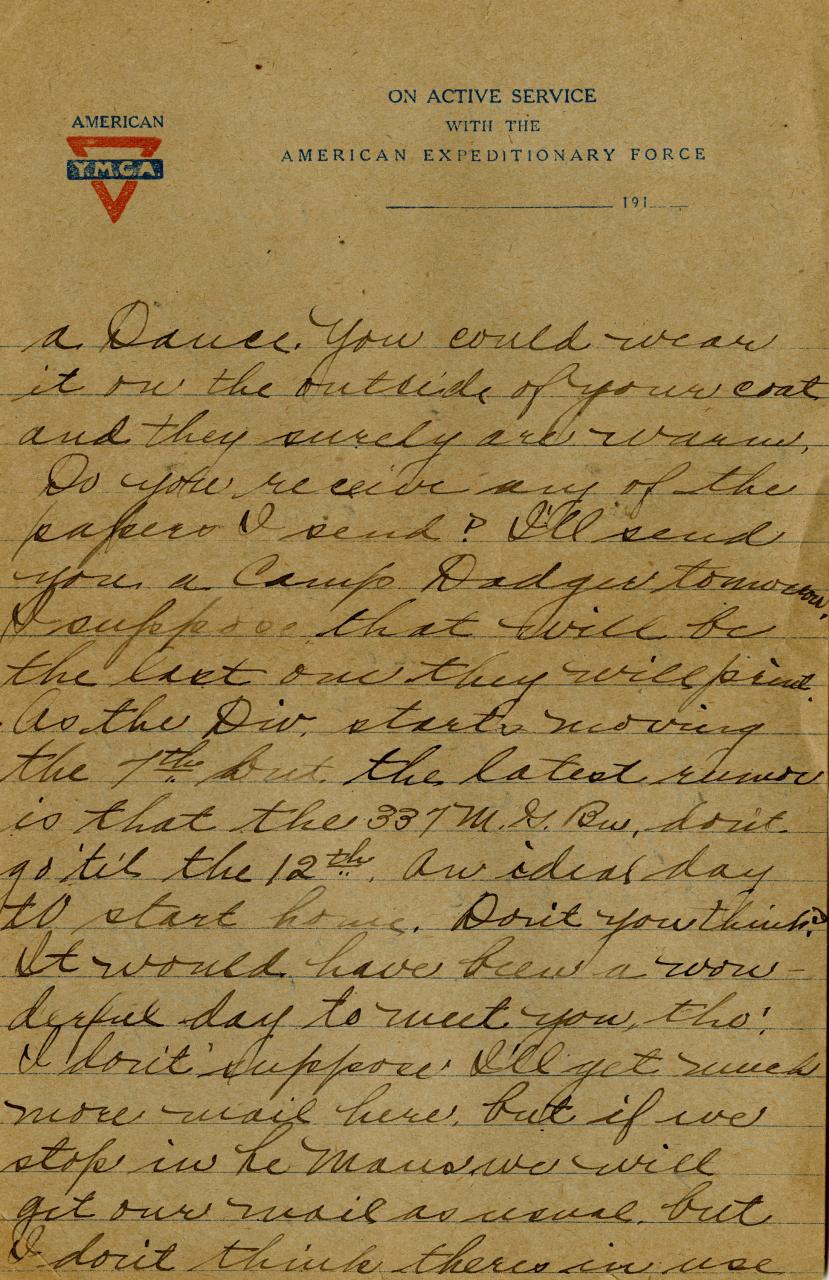 AMERICAN
Y.M.C.A.
ON ACTIVE SERVICE
WITH THE
AMERICAN EXPEDITIONARY FORCE
191
a Dance. You could wear
it on the outside of your coat
and they surely are warm.
Do you receive any of the
papers I send? I'll send
you a Camp Dodger tomorrow,
I suppose that will be
the last one they will print.
As the Div. starts moving
the 7th but the latest rumor
is that the 337 M. G. Bn. dont
go 'til the 12th. An ideal day
to start home. Don't you think?
It would have been a won-
derful day to meet you, tho'.
I don't suppose I'll get much
more mail here, but if we
stop in Le Mans we will
get our mail as usual, but
I don't think theres in use